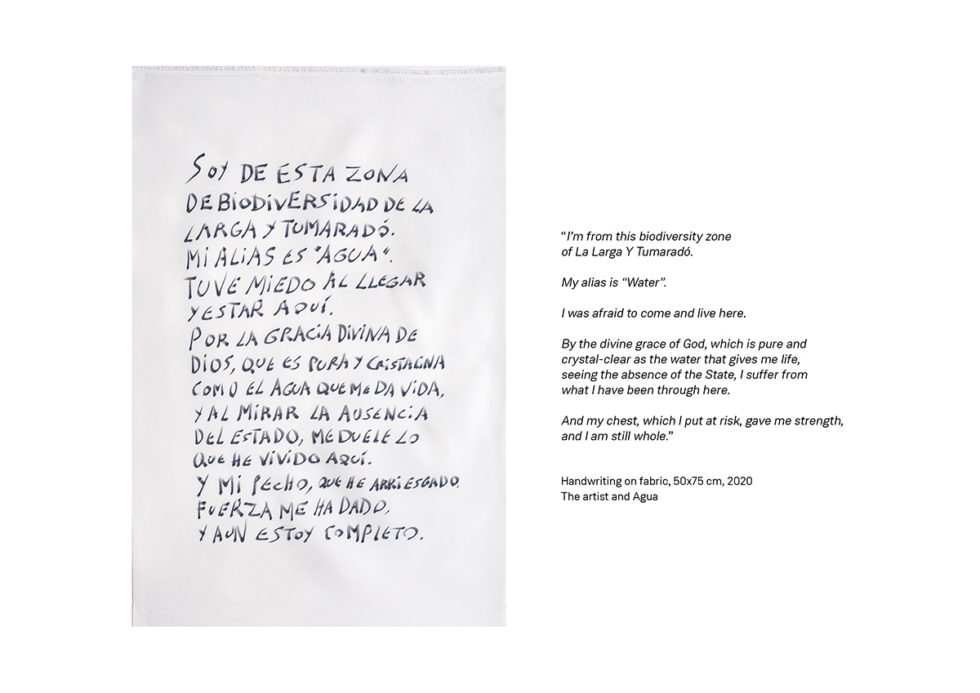 SOY DE ESTA ZONA
DE BIODIVERSIDAD DE LA
LARGA Y TUMARADÓ.
MI ALIAS ES "AGUA".
TUVE MIEDO AL LLEGAR
Y ESTAR AQUÍ.
POR LA GRACIA DIVINA DE
DIOS, QUE ES PURA Y CRISTALINA
COMO EL AGUA QUE ME DA VIDA,
Y AL MIRAR LA AUSENCIA
DEL ESTADO, ME DUELE LO
QUE HE VIVIDO AQUÍ.
Y MI PECHO, QUE HE ARRIESGADO,
FUERZA ME HA DADO,
Y AUN ESTOY COMPLETO.
“I’m from this biodiversity zone
of La Larga Y Tumaradó.
My alias is “Water”.
I was afraid to come and live here.
By the divine grace of God, which is pure and
crystal-clear as the water that gives me life,
seeing the absence of the State, I suffer from
what I have been through here.
And my chest, which I put at risk, gave me strength,
and I am still whole.”
Handwriting on fabric, 50x75 cm, 2020
The artist and Agua